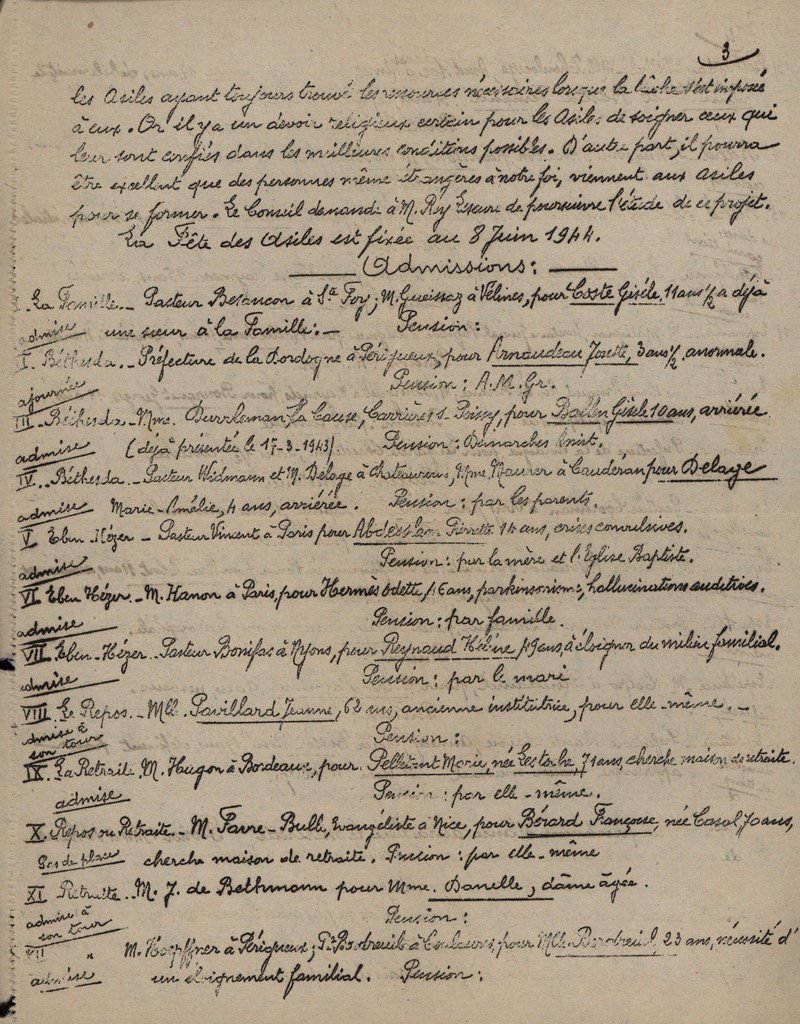 3
les Asiles ayant toujours trouvé les ressources nécessaires lorsque la tâche s'est imposé
à eux. Or il y a un devoir religieux certain pour les Asiles de soigner ceux qui
leur sont confiés dans les meilleures conditions possibles. D'autre part, il pourra
être excellent que des personnes même étrangères à notre foi, viennent aux Asiles
pour se former. Le Conseil demande à M. Rey Lescure de poursuivre l'étude de ce projet.
La Fête des Asiles est fixée au 8 Juin 1944.
Admissions:
I. La Famille.. Pasteur Besançon à Ste Foy; M. Gueissaz à Vélines, pour Coste Gisèle, 11 ans 1/2 a déjà
admise une sœur à la Famille. - Pension:
I. Béthesda.. Préfecture de la Dordogne à Périgueux, pour Arnaudeau Josette, 3 ans 1/2, anormale.
ajournée Pension: A.M.Gr.
III. Béthesda - Mme. Durrleman, La Cause, Carrières s. Poissy, pour Gisèle 10 ans, arriérée
admise (déjà présentée le 17-3-1943). Pension: Démarches
IV. Béthesda - Pasteur Widmann et M. Delage à Chateauroux, Mme Maurer à Caudéran pour Delage
admise Marie-Amélie, 4 ans, arriérée. Pension: par les parents.
V. Eben Hézer - Pasteur Vincent à Paris pour Pierrette 14 ans, crises convulsives.
admise Pension: par la mère et l'Eglise Baptiste.
VI. Eben Hézer - M. Hanon à Paris, pour Hermès Odette, 16 ans, parkinsonisme, hallucinations auditives.
admise Pension: par famille.
VII. Eben-Hézer. Pasteur Bonifas à Nyons, pour Reynaud Hélène, 49 ans, à éloigner du milieu familial.
admise Pension: par le mari
VIII. Le Repos. - Mlle. Pavillard Jeanne, 62 ans, ancienne institutrice, pour elle-même. -
admise à son tour Pension:
IX. La Retraite. M. Hugon à Bordeaux, pour Pelletant Marie, née 71 ans, cherche maison de retraite.
admise Pension: par elle-même.
X. Repos ou Retraite - M. Favre-Bulle, Evangéliste à Nice, pour Bérard Françoise, née Casal, 70 ans,
Pas de place cherche maison de retraite. Pension: par elle-même
XI. Retraite - M. J. de Bethmann pour Mme. Danelle, dâme âgée.
admise à son tour Pension:
XII " M. Hoepffner à Périgueux; à Coulaures, pour Mlle 23 ans, nécessité d'
admise un éloignement familial. Pension: